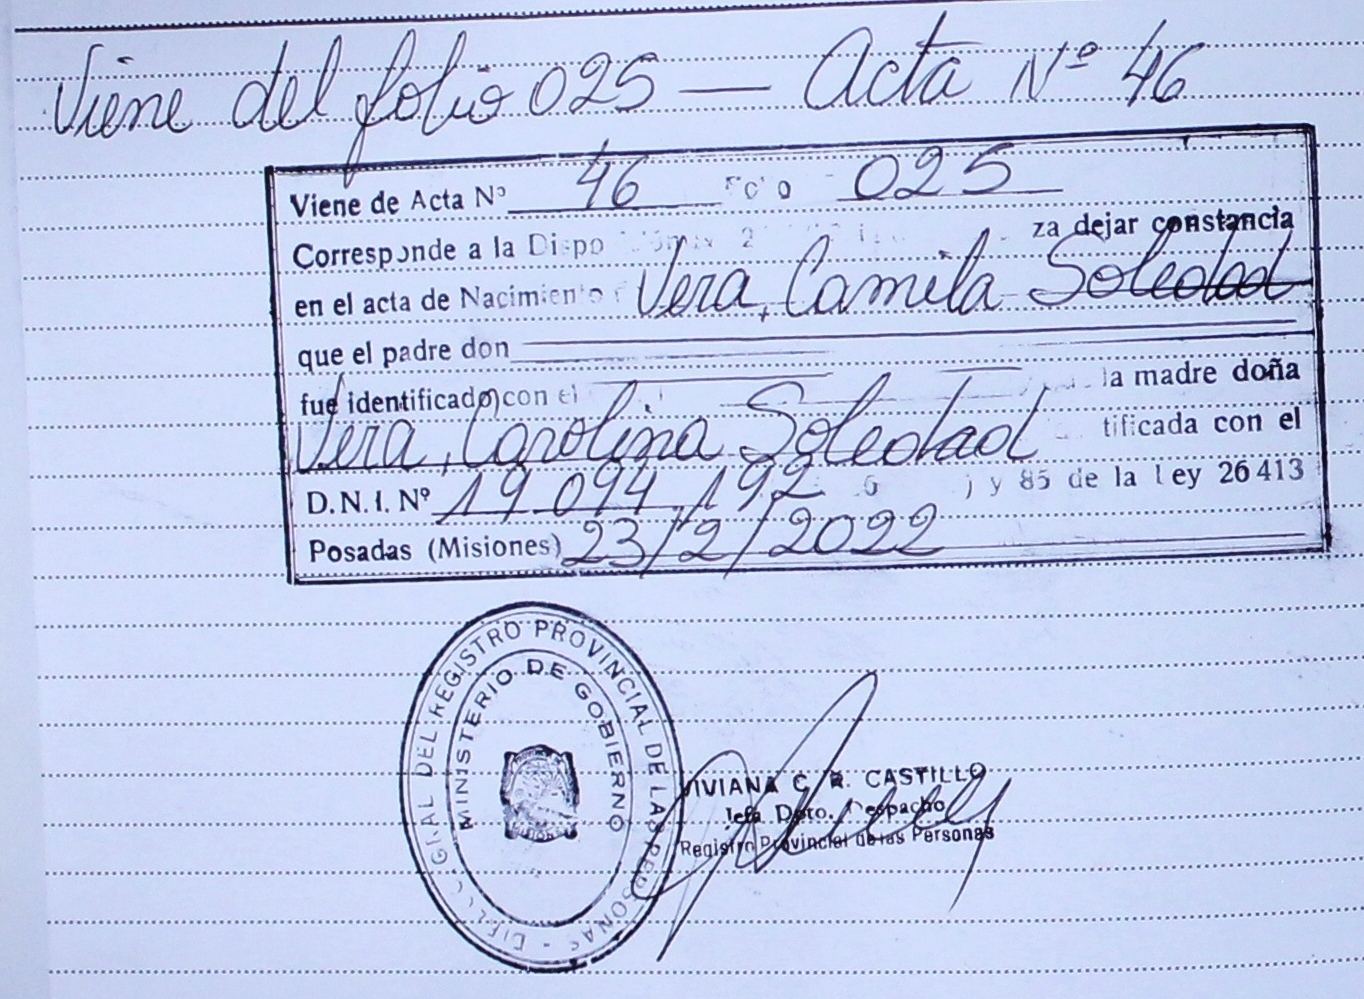 Viene del folio 025 — Acta Nº 46
Viene de Acta Nº 46 025
Corresponde a la Dispo za dejar constancia
en el acta de Nacimiento Vera, Camila Soledad
que el padre don
fue identificado con el la madre doña
Vera, Carolina Soledad tificada con el
D.N.I. Nº 19.094.192 y 85 de la Ley 26413
Posadas (Misiones) 23/2/2022
REGISTRO PROVINCIAL DE LAS PERSONAS
MINISTERIO DE GOBIERNO
VIVIANA C. R. CASTILLO
Jefa Dpto. Despacho
Registro Provincial de las Personas